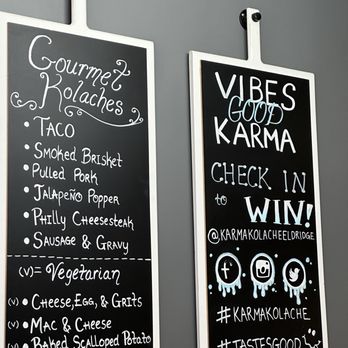 Gourmet
Kolaches
• Taco
• Smoked Brisket
• Pulled Pork
• Jalapeño Popper
• Philly Cheesesteak
• Sausage & Gravy
(v)= Vegetarian
(v) • Cheese, Egg, & Grits
(v) • Mac & Cheese
(v) • Baked Scalloped Potato
VIBES
GOOD
KARMA
CHECK IN
to WIN!
@KARMAKOLACHEELDRIDGE
#KARMAKOLACHE
#TASTESGOOD